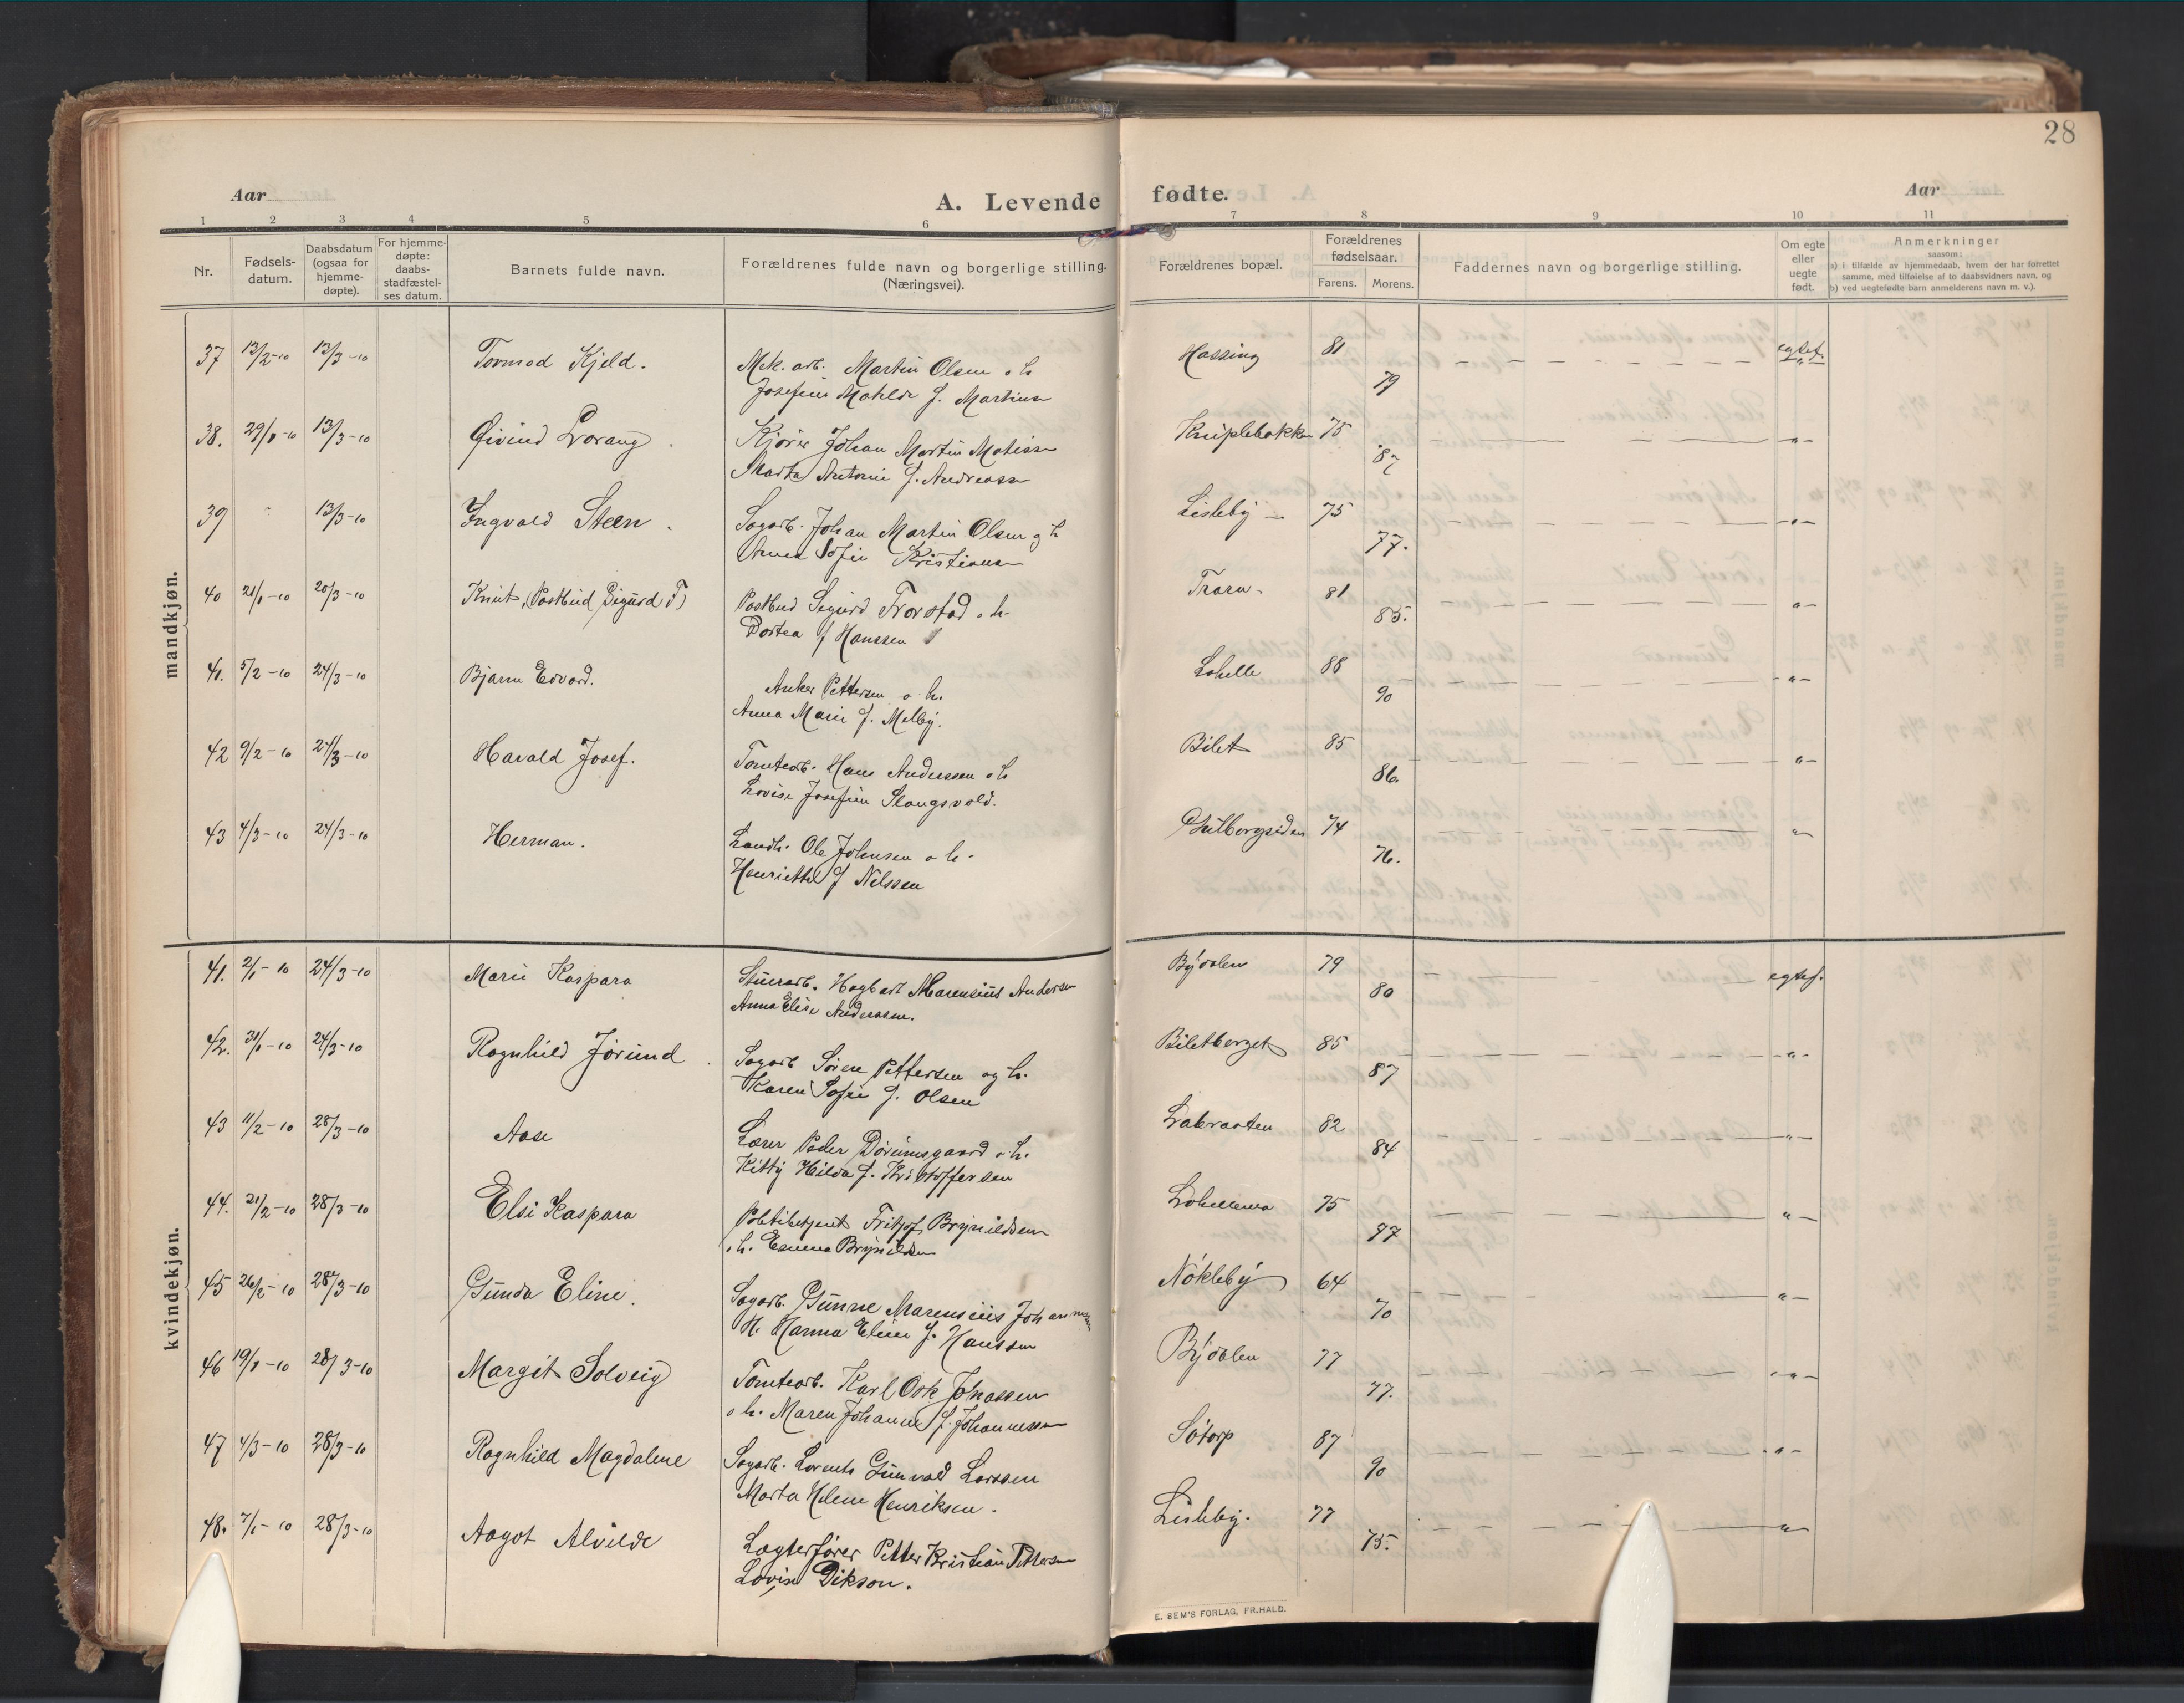 28
Aar
A. Levende fødte.
Aar
1 2 3 4 5 6 7 8 9 10 11
Nr.
Fødsels-
datum.
Daabsdatum
(ogsaa for
hjemme-
døpte).
For hjemme-
døpte:
daabs-
stadfæstel-
ses datum.
Barnets fulde navn.
Forældrenes fulde navn og borgerlige stilling.
(Næringsvei).
Forældrenes bopæl.
Forældrenes
fødselsaar.
Farens. Morens.
Faddernes navn og borgerlige stilling.
Om egte
eller
uegte
født.
Anmerkninger
saasom:
a) i tilfælde av hjemmedaab, hvem der har forrettet
samme, med tilføielse af to daabsvidners navn, og
b) ved uegtefødte barn anmelderens navn m. v.).
mandkjøn.
37 13/2-10 13/3-10 Tormod Kjeld. Mek. arb. Martin Olsen o h Hassing 81 egtef.
Josefine Matilde f. Martinsen 79
38. 29/1-10 13/3-10 Eivind Lorang Kjører Johan Martin Matisen Kniplebakken 75 -"-
Marta Antonie f. Andreassen 87
39 " 13/3-10 Ingvald Steen Sagarb. Johan Martin Olsen og h Lisleby 75 -"-
Anna Sofie Kristiansen 77.
40 21/1-10 20/3-10 Knut, (Postbud Sigurd F) Postbud Sigurd Frorstad o h. Trara 81 "-
Dortea f Hanssen 85.
41. 5/2-10 24/3-10 Bjarne Edvard. Anker Pettersen o h. Lahelle 88 -"-
Anna Marie f. Melby. 90
42 9/2-10 24/3-10 Harald Josef. Tomtearb. Hans Anderssen o h Bilet 85 "-
Lovise Josefine Slangsvold. 86.
43 4/3-10 24/3-10 Herman. Landh. Ole Johnsen o h. Gulbergsiden 74 "-
Henriette f Nilssen 76.
kvindekjøn.
41. 2/1-10 24/3-10 Marie Kaspara Stuerarb. Hagbart Marensius Andersen Bydalen 79 egtef.
Anna Elise Anderssen. 80
42. 31/1-10 24/3-10 Ragnhild Jorund Sagarb Sören Pettersen og h. Biletberget 85 -"-
Karen Sofie f. Olsen 87
43 11/2-10 28/3-10 Aase Lærer Peder Dörumsgaard o h. Labraaten 82 "-
Kitty Hilda f. Kristoffersen 84
44. 21/2-10 28/3-10 Elsi Kaspara Politibetjent Fritjof Brynildsen Lahellema 75 "-
o h. Emma Brynildsen 87
45 26/2-10 28/3-10 Gunda Eline. Sagarb. Gunne Marensius Johannessen Nökleby 64 "-
H. Hanna Eline f. Hanssen 70
46 19/1-10 28/3-10 Margit Solveig Tomtearb. Karl Osk Johassen Bydalen 77 -"-
o h. Maren Johanne f. Johannessen 77.
47 4/3-10 28/3-10 Ragnhild Magdalene Sagarb. Lorents Gunvald Larssen Sötorp 87 -"-
Marta Helene Henriksen. 90
48. 7/1-10 28/3-10 Aagot Alvilde Lægterfører Petter Kristian Pettersen Lisleby. 77 "-
Lovise Dikson. 75.
E. SEM'S FORLAG, FR.HALD.